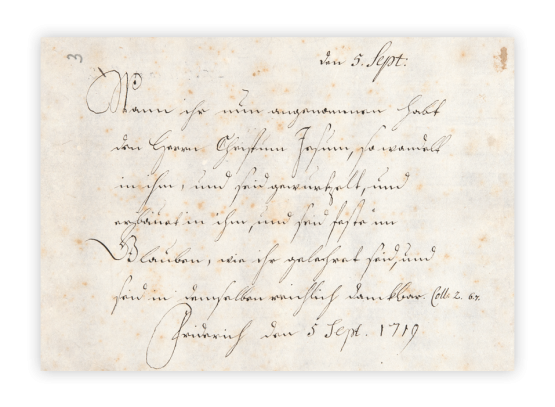 3
den 5. Sept:
Wann ihr nun angenommen habt
den Herrn Christum Jesum, so wandelt
in ihm, und seid gewurtzelt, und
erbauet in ihm, und seid feste im
Glauben, wie ihr gelehret seid, und
seid in demselben reichlich dankbar. Coll: 2. 6.7.
Friderich den 5 Sept. 1719.